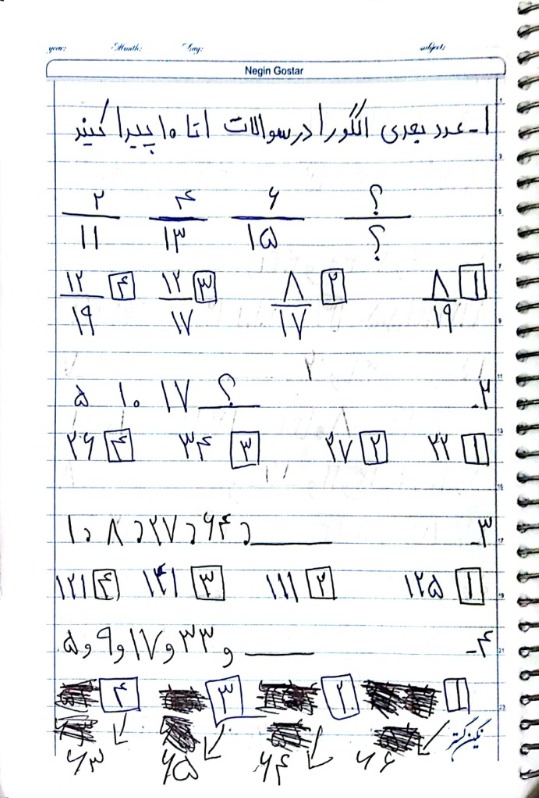 year: Month: Day: subject:
Negin Gostar
۱- عدد بعدی الگو را در سوالات ۱ تا ۱۰ پیدا کنید
۲/۱۱ ۴/۱۳ ۶/۱۵ ؟/؟
۱ ۸/۱۹ ۲ ۸/۱۷ ۳ ۱۲/۱۷ ۴ ۱۲/۱۹
۲- ۵ ۱۰ ۱۷ ؟
۱ ۲۲ ۲ ۲۷ ۳ ۳۴ ۴ ۲۶
۳- ۱، ۸، ۲۷، ۶۴، ____
۱ ۱۲۵ ۲ ۱۱۱ ۳ ۱۴۱ ۴ ۱۲۱
۴- ۵ و ۹ و ۱۷ و ۳۳ و ____
۱ ۲ ۳ ۴
۶۶ ۶۴ ۶۵ ۶۳
نگین گستر